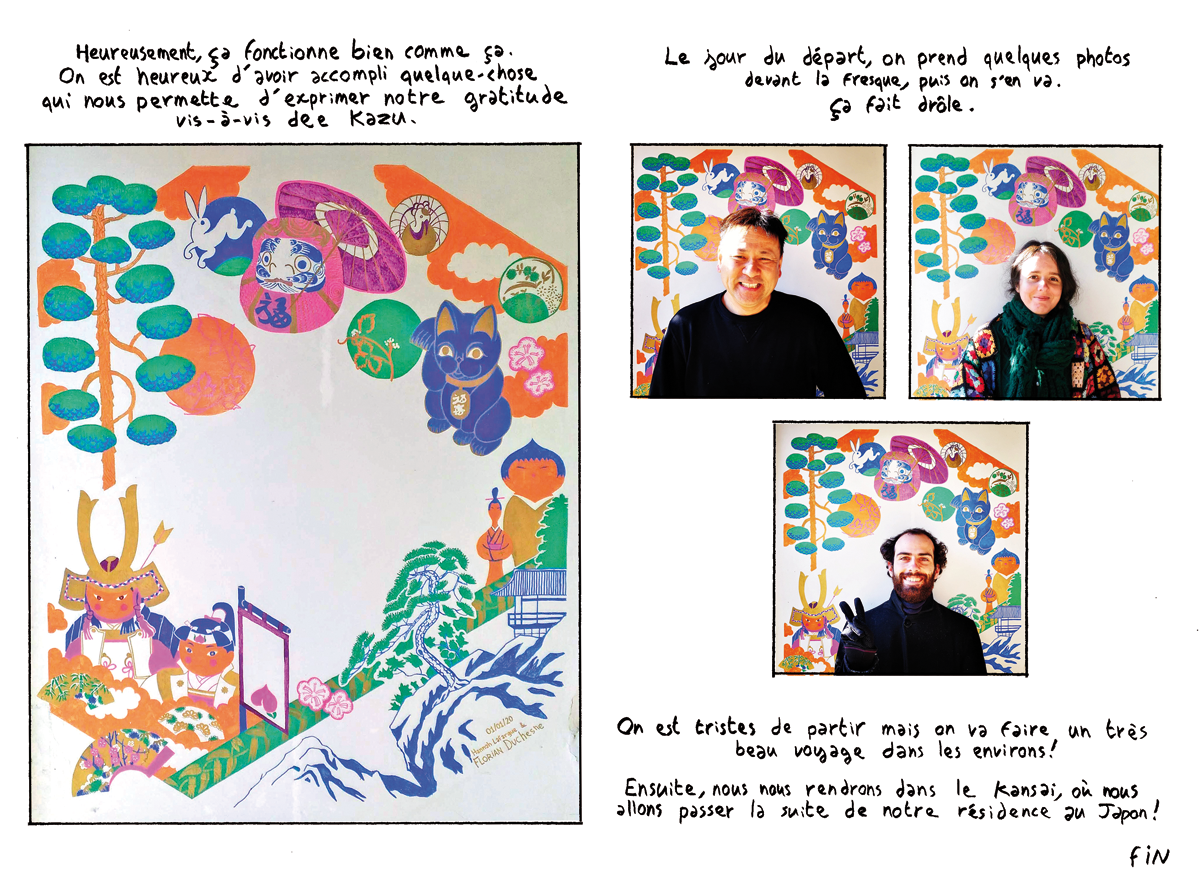 Heureusement, ça fonctionne bien comme ça.
On est heureux d'avoir accompli quelque-chose
qui nous permette d'exprimer notre gratitude
vis-à-vis dee Kazu.
福
01/01/20
Hannah Lafargue &
FLORIAN Duchesne
Le jour du départ, on prend quelques photos
devant la fresque, puis on s'en va.
ça fait drôle.
On est tristes de partir mais on va faire un très
beau voyage dans les environs!
Ensuite, nous nous rendrons dans le Kansai, où nous
allons passer la suite de notre résidence au Japon!
FiN